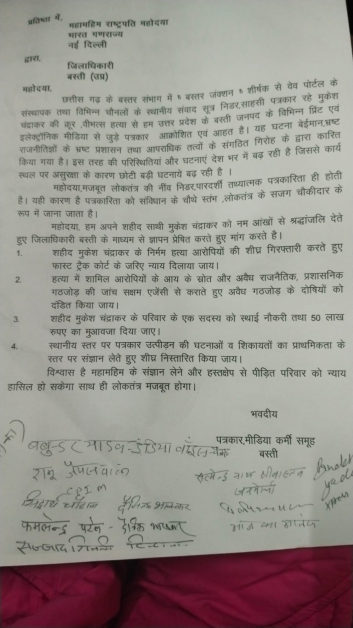 प्रतिष्ठा में,
महामहिम राष्ट्रपति महोदया
भारत गणराज्य
नई दिल्ली
द्वारा,
जिलाधिकारी
बस्ती (उप्र)
महोदया,
छत्तीस गढ़ के बस्तर संभाग में १ बस्तर जंक्शन १ शीर्षक से वेव पोर्टल के
संस्थापक तथा विभिन्न चौनलों के स्थानीय संवाद सूत्र निडर,साहसी पत्रकार रहे मुकेश
चंद्राकर की क्रूर ,वीभत्स हत्या से हम उत्तर प्रदेश के बस्ती जनपद के विभिन्न प्रिंट एवं
इलेक्ट्रोनिक मीडिया से जुड़े पत्रकार आक्रोशित एवं आहत है। यह घटना बेईमान,भ्रष्ट
राजनीतिज्ञों के भ्रष्ट प्रशासन तथा आपराधिक तत्वों के संगठित गिरोह के द्वारा कारित
किया गया है। इस तरह की परिस्थितियां और घटनाएं देश भर में बढ़ रही है जिससे कार्य
स्थल पर असुरक्षा के कारण छोटी बड़ी घटनाये बढ़ रही है ।
महोदया,मजबूत लोकतंत्र की नींव निडर,पारदर्शी तथ्यात्मक पत्रकारिता ही होती
है। यही कारण है पत्रकारिता को संविधान के चौथे स्तंभ ,लोकतंत्र के सजग चौकीदार के
रूप में जाना जाता है।
महोदया, हम अपने शहीद साथी मुकेश चंद्राकर को नम आंखों से श्रद्धांजलि देते
हुए जिलाधिकारी बस्ती के माध्यम से ज्ञापन प्रेषित करते हुए मांग करते है।
1. शहीद मुकेश चंद्राकर के निर्मम हत्या आरोपियों की शीघ्र गिरफ्तारी करते हुए
फास्ट ट्रैक कोर्ट के जरिए न्याय दिलाया जाय।
2. हत्या में शामिल आरोपियों के आय के स्रोत और अवैध राजनैतिक, प्रशासनिक
गठजोड़ की जांच सक्षम एजेंसी से कराते हुए अवैध गठजोड़ के दोषियों को
दंडित किया जाय।
3. शहीद मुकेश चंद्राकर के परिवार के एक सदस्य को स्थाई नौकरी तथा 50 लाख
रुपए का मुआवजा दिया जाए।
4. स्थानीय स्तर पर पत्रकार उत्पीड़न की घटनाओं व शिकायतों का प्राथमिकता के
स्तर पर संज्ञान लेते हुए शीघ्र निस्तारित किया जाय।
विश्वास है महामहिम के संज्ञान लेने और हस्तक्षेप से पीड़ित परिवार को न्याय
हासिल हो सकेगा साथ ही लोकतंत्र मजबूत होगा।
भवदीय
पत्रकार,मीडिया कर्मी समूह
बस्ती
यादव इंडिया
दैनिक भास्कर
कमलेन्द्र पटेल - दैनिक भास्कर